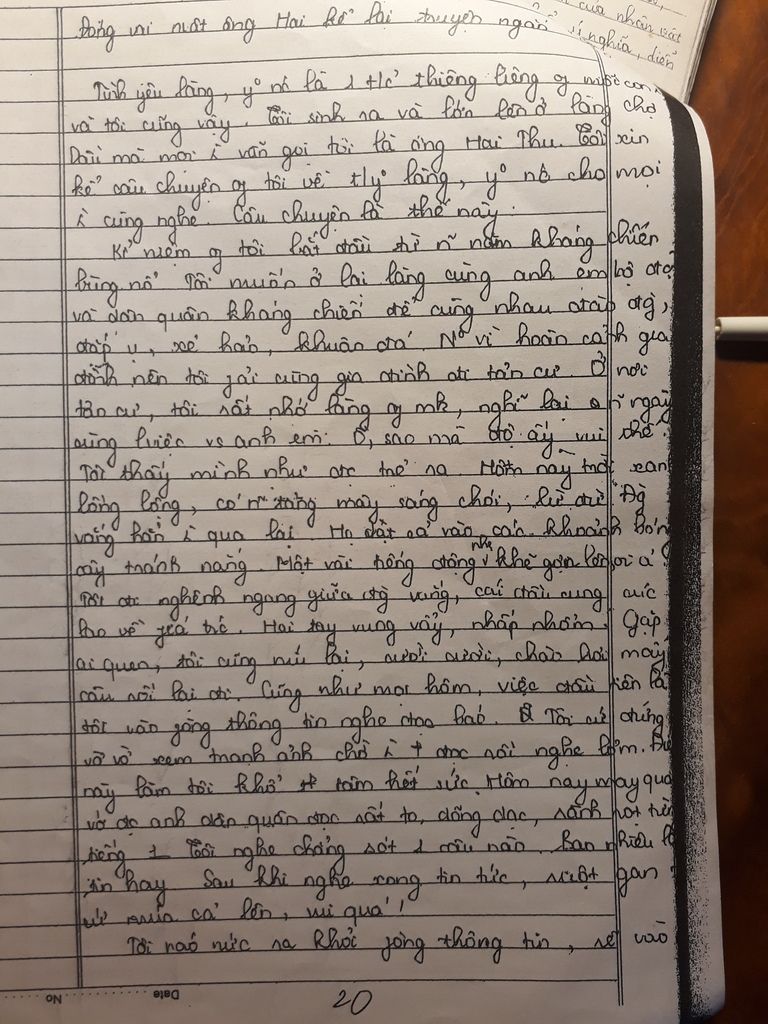 Đóng vai một ông Hai kể lại truyện ngắn
của nhân vật
ý nghĩa, diễn
Tình yêu làng, yº nc là 1 t/cº thiêng liêng of mỗi con
và tôi cũng vậy. Tôi sinh ra và lớn lên ở làng chợ
Dầu mà mọi i vẫn gọi tôi là ông Hai Thu. Tôi xin
kể câu chuyện of tôi về t/yº làng, yº nc cho mọi
i cùng nghe. Câu chuyện là thế này:
Kỉ niệm of tôi bắt đầu từ ~n năm kháng chiến
bùng nổ. Tôi muốn ở lại làng cùng anh em bộ đội
và dân quân kháng chiến để cùng nhau đào đg,
đắp ụ, xẻ hào, khuân đá. N° vì hoàn cảnh gia
đình nên tôi fải cùng gia đình đi tản cư. Ở nơi
tản cư, tôi rất nhớ làng of mk, nghĩ lại ~n ngày
cùng lviệc vs anh em. Ồ, sao mà độ ấy vui thế.
Tôi thấy mình như đc trẻ ra. Hôm nay trời xan
lồng lộng, có ~n tảng mây sáng chói, lừ đừ. Đg
vắng hẳn i qua lại. Họ dạt cả vào các khoảnh bóng
cây tránh nắng. Một vài tiếng động nhẹ khẽ gợn lên
Tôi đi nghênh ngang giữa đg vắng, cái đầu cung cúc
lao về fía trc. Hai tay vung vẩy, nhấp nhổm. Gặp
ai quen, tôi cũng níu lại, cười cười, chào hỏi mấy
câu rồi lại đi. Cũng như mọi hôm, việc đầu tiên là
tôi vào fòng thông tin nghe đọc báo. Tôi cứ đứng
vờ vờ xem tranh ảnh chờ i + đọc rồi nghe lỏm. Điề
này làm tôi khổ tâm hết sức. Hôm nay may quá
vớ đc anh dân quân đọc rất to, dõng dạc, rành rọt từn
tiếng 1. Tôi nghe chẳng sót 1 câu nào. Bao nhiêu là
tin hay. Sau khi nghe xong tin tức, ruột gan
cứ múa cả lên, vui quá!
Tôi náo nức ra khỏi fòng thông tin, rẽ vào
20
Date No